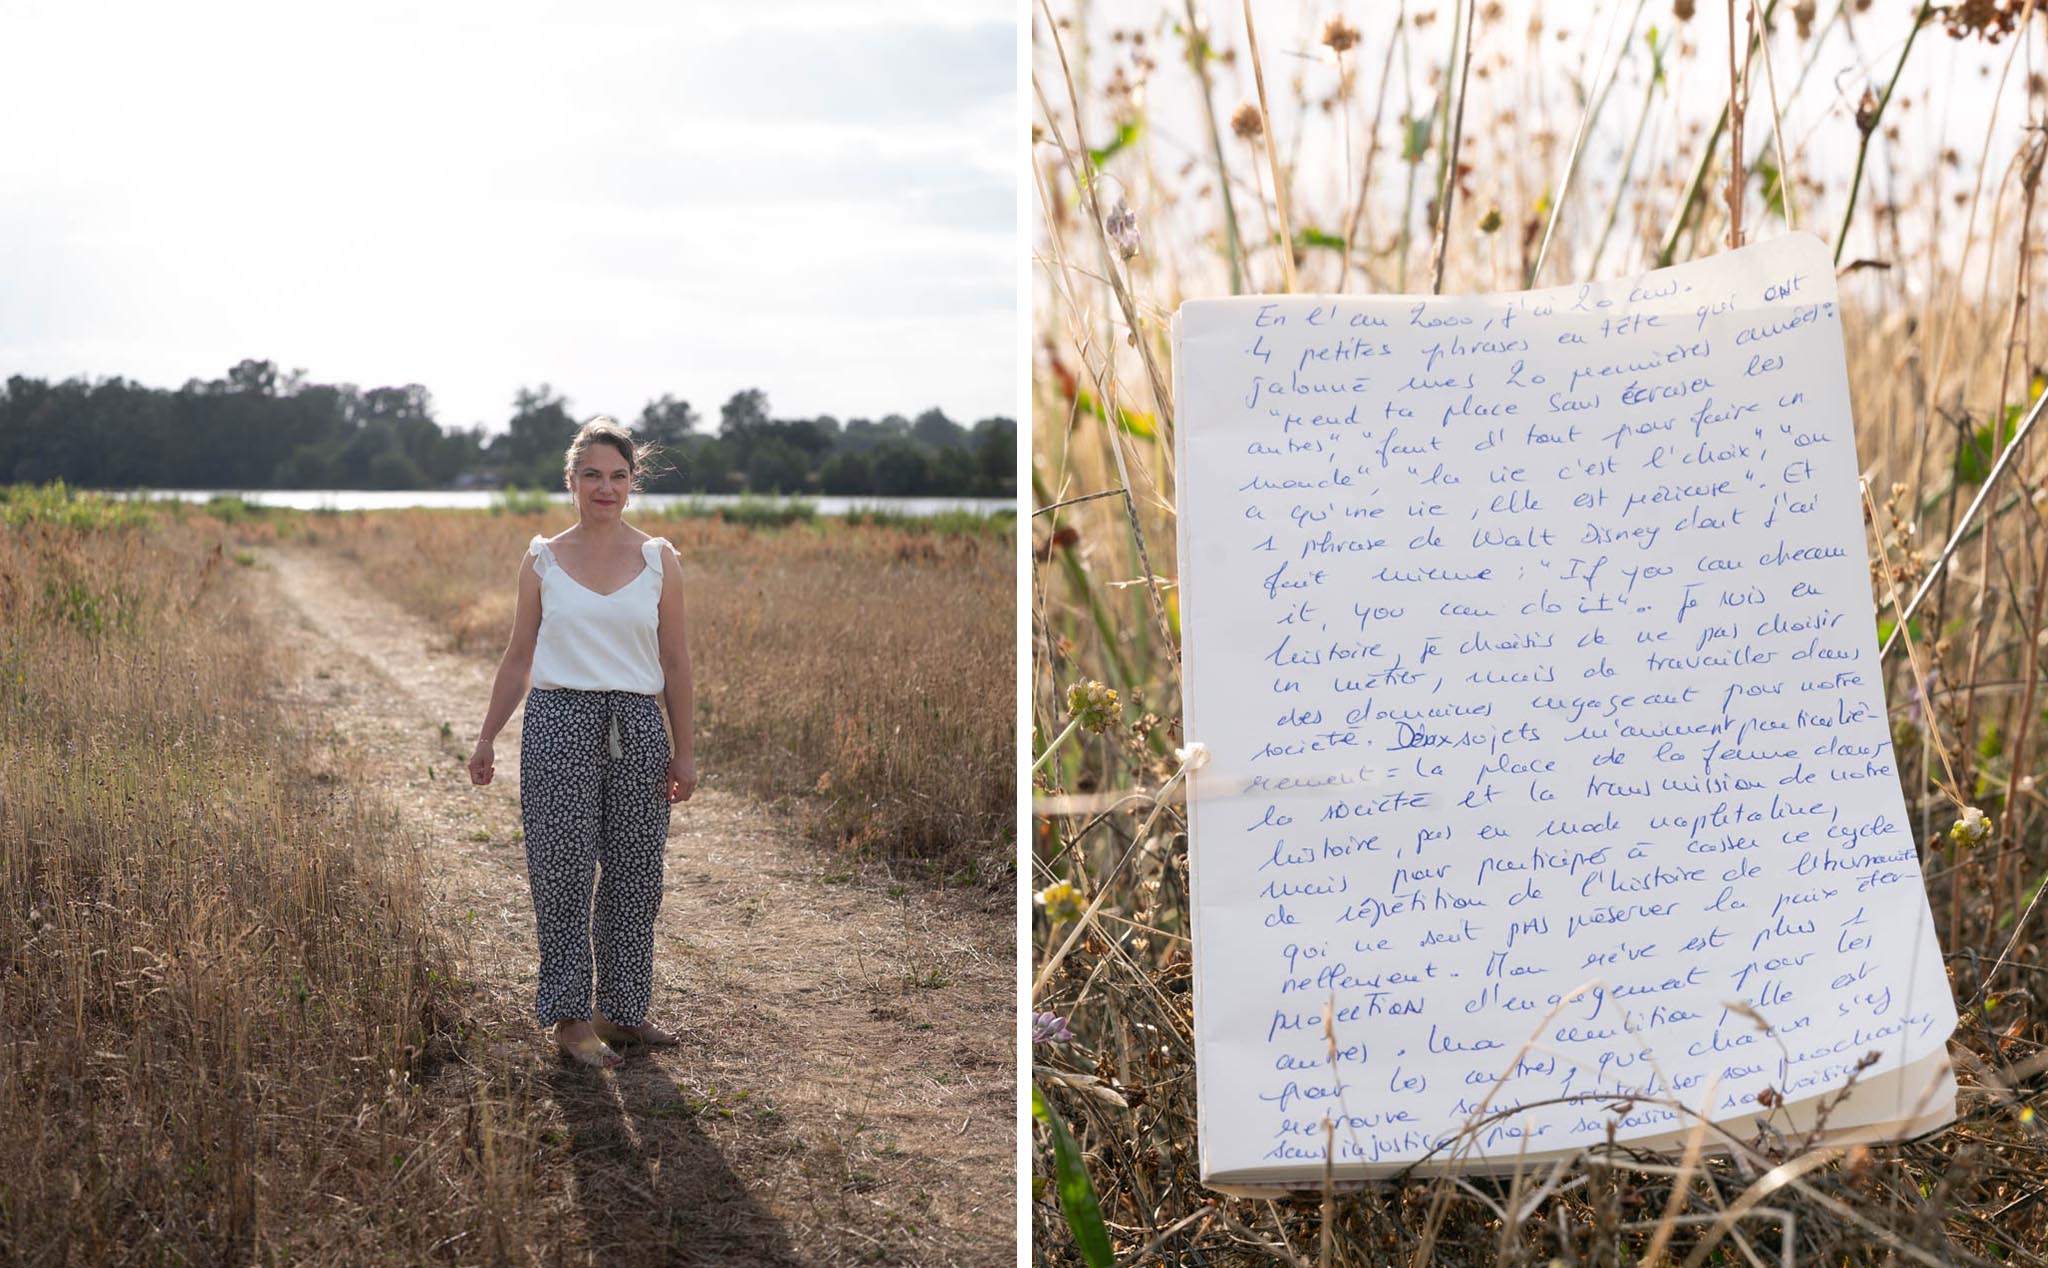 En l'an 2000, j'ai 20 ans.
4 petites phrases en tête qui ont
jalonné mes 20 premières années:
"prend ta place sans écraser les
autres", "faut d'tout pour faire un
monde", "la vie c'est l'choix", "on
a qu'une vie, elle est précieuse". Et
1 phrase de Walt Disney dont j'ai
fait mienne : "If you can dream
it, you can do it". Je suis en
histoire, je choisis de ne pas choisir
un métier, mais de travailler dans
des domaines engageant pour notre
société. Deux sujets m'animent particuliè-
rement = la place de la femme dans
la société et la transmission de notre
histoire, pas en mode naphtaline,
mais pour participer à casser ce cycle
de répétition de l'histoire de l'humanité
qui ne sait pas préserver la paix éter-
nellement. Mon rêve est plus 1
projection d'engagement pour les
autres. Ma ambition, elle est
pour les autres, que chacun s'y
retrouve sans brutaliser son prochain,
sans injustice pour sa voisine